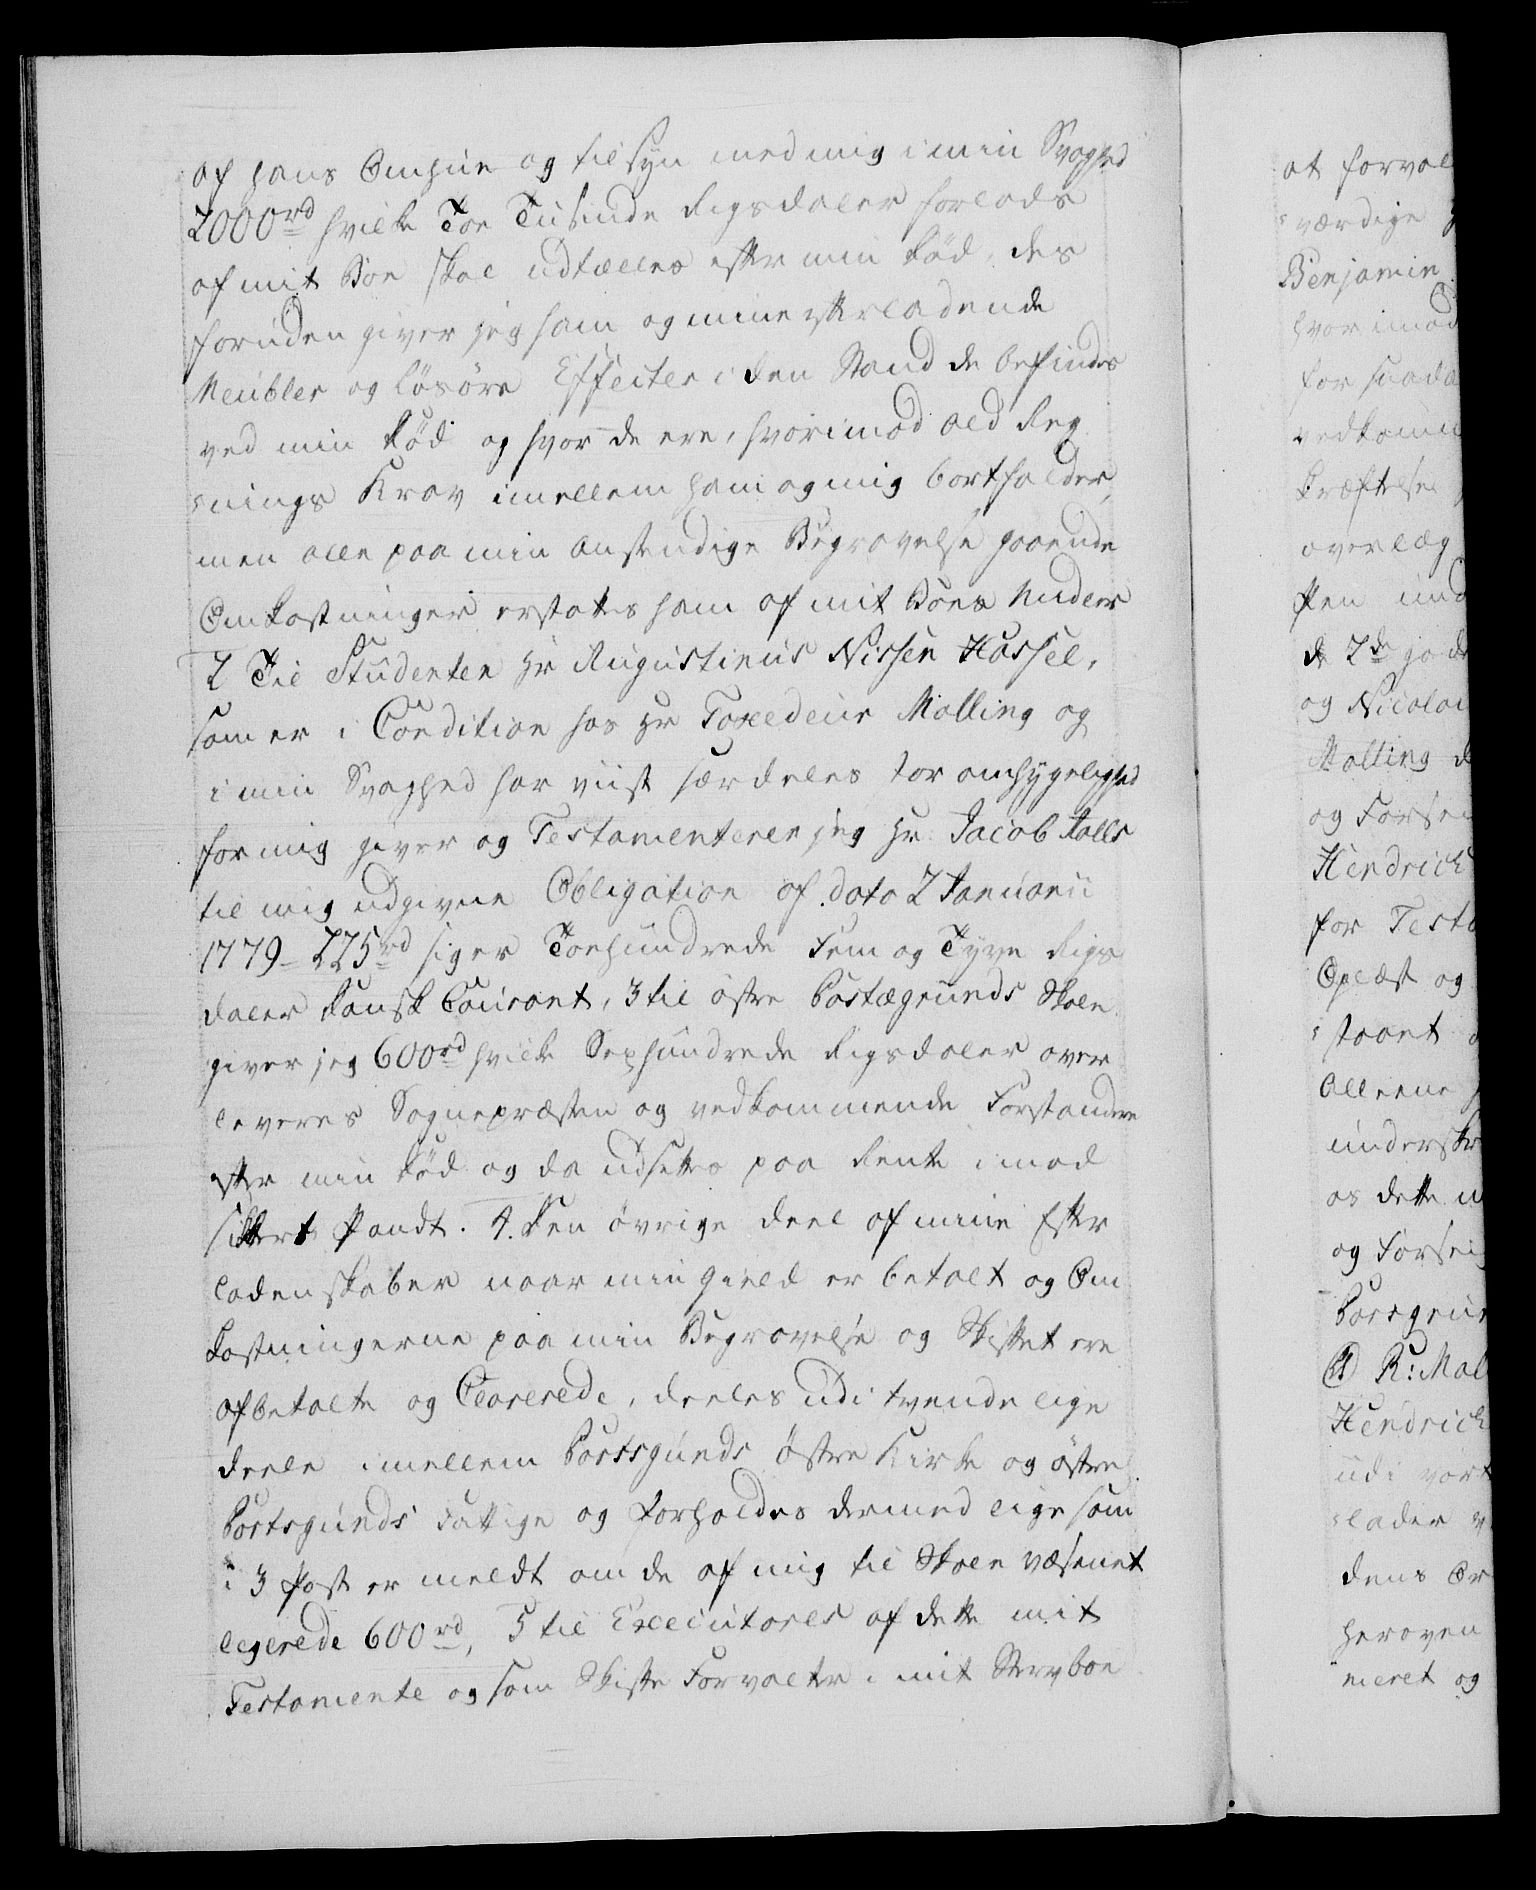 af hans Omhue og tilsyn med mig i min Svaghed
2000rd hvilke Toe Tusinde Rigsdaler forlods
af mit Boe skal udtælles efter min Död, des
foruden giver jeg ham og mine efterladende
Meubler og lösöre Effecter i den Stand de befindes
ved min Död og hvor de ere, hvorimod ald Reg
nings Krav imellem ham og mig bortfalder,
men alle paa min anstendige Begravelse gaaende
Omkostninger erstattes ham af mit Boes Midler
2 Til Studenten Hr Augustinus Nissen Hassel,
som er i Condition hos Hr Toxedeur Malling og
i min Svaghed har viist særdeles stor omhyggelighed
for mig giver og Testamenterer jeg Hr Jacob Aalls
til mig udgivne Obligation af dato 2 Januarii
1779 - 225rd siger Toehundrede Fem og Tyve Rigs
daler Dansk Courant, 3 til östre Porsegrunds Skole
giver jeg 600rd hvilke Sexhundrede Rigsdaler over
leveres Sognepræsten og vedkommende Forstandere
efter min Död og da udsettes paa Rente imod
sikkert Pandt. 4. Den övrige Deel af mine Efter
ladenskaber naar min Gield er betalt og Om
kostningerne paa min Begravelse og Skiftet ere
afbetalte og Clarerede, deeles udi tvende lige
deele imellem Porsgrunds östre Kirke og östre
Porsgrunds Fattige og forholdes dermed lige som
i 3 Post er meldt om de af mig til Skole væsenet
legerede 600rd, 5 til Executores af dette mit
Testamente og som Skifte Forvalter i mit Stervboe
at forval
værdige
Benjamin
hvorimod
for saada
vedkomm
kræftelse
overlæg
Pen und
de 2de gode
og Nicolai
Malling
og Forse
Hendrich
for Testa
Oplæst og
staaet
Alleene
underskr
os dette
og Forsei
Porsgrun
R: Mal
Hendrich
udi vort
lader
dens Or
heroven
meret og